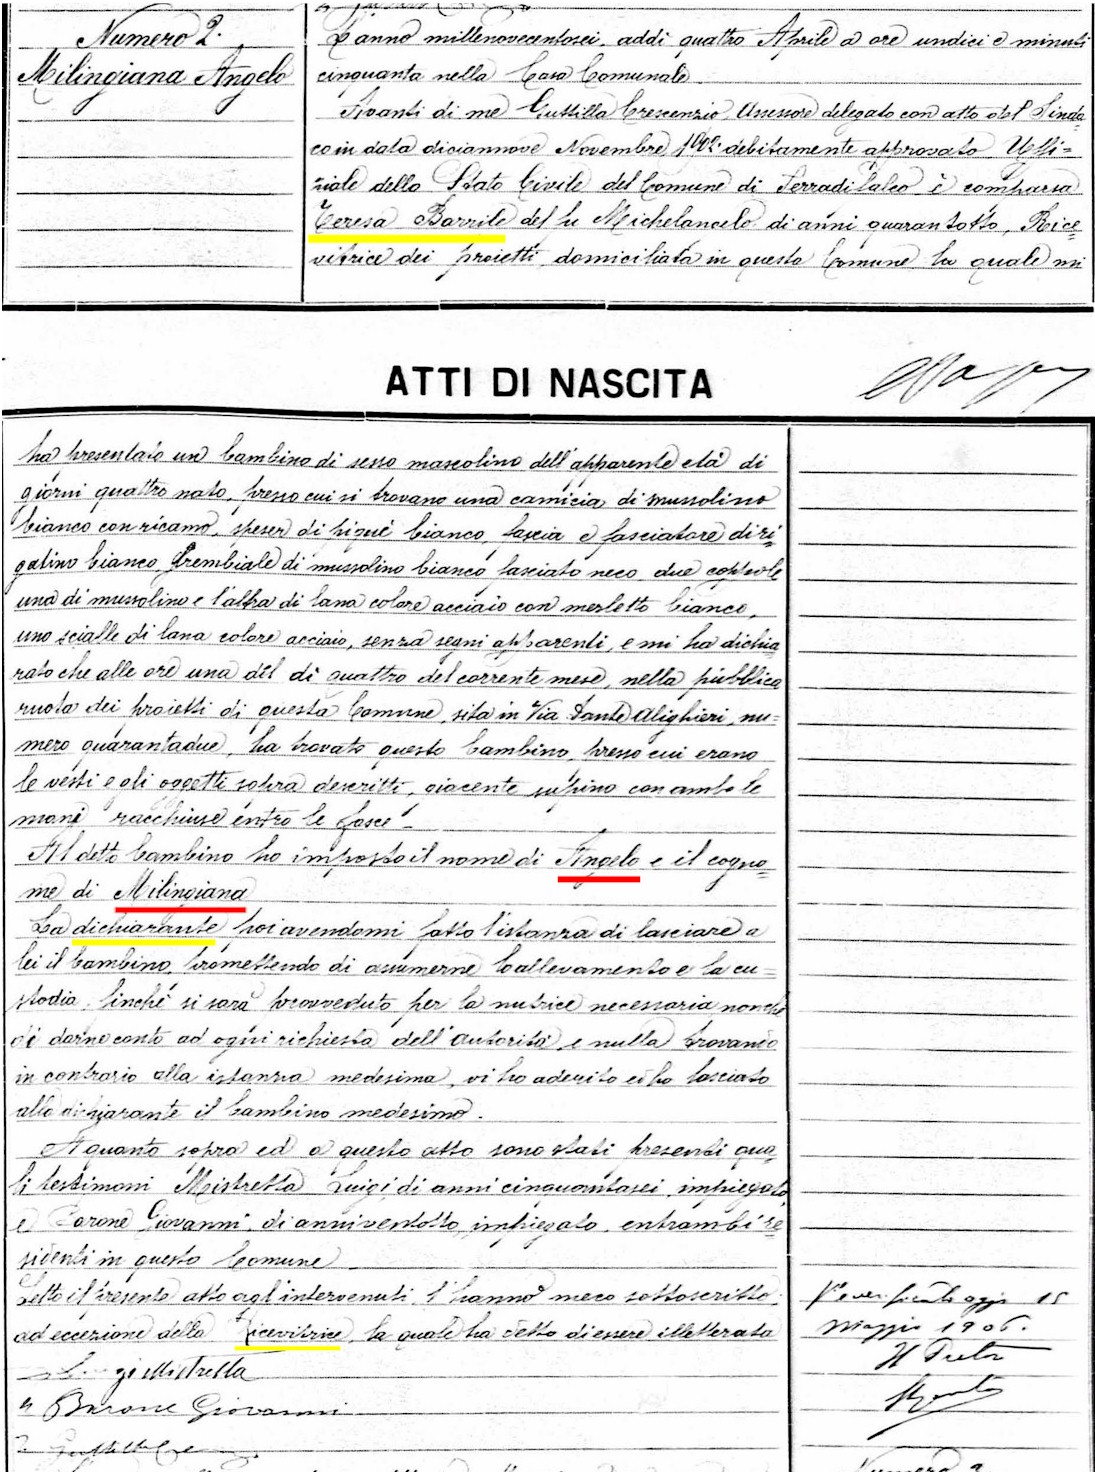 Numero 2.
Milingiana Angelo
L'anno millenovecentosei, addi quattro Aprile a ore undici e minuti
cinquanta nella Casa Comunale.
Avanti di me Guttilla Crescenzio Assessore delegato con atto del Sinda-
co in data diciannove Novembre 1902 debitamente approvato Uffi=
ziale dello Stato Civile del Comune di Serradifalco è comparsa
Teresa Barrile del fu Michelangelo di anni quarantotto, Rice-
vitrice dei proietti, domiciliata in questo Comune la quale mi
ATTI DI NASCITA
ha presentato un bambino di sesso mascolino dell'apparente età di
giorni quattro nato, presso cui si trovano una camicia di mussolino
bianco con ricamo, speser di piquè bianco, fascia e fasciatore di ri-
gatino bianco, grembiale di mussolino bianco fasciato neco, due coppole
una di mussolino e l'altra di lana colore acciaio con merletto bianco,
uno scialle di lana colore acciaio, senza segni apparenti, e mi ha dichia
rato che alle ore una del dì quattro del corrente mese, nella pubblica
ruota dei proietti di questo Comune, sita in Via Dante Alighieri, nu=
mero quarantadue, ha trovato questo bambino, presso cui erano
le vesti e gli oggetti sopra descritti, giacente supino con ambo le
mani racchiuse entro le fasce.
Al detto bambino ho imposto il nome di Angelo e il cogno=
me di Milingiana
La dichiarante poi avendomi fatto l'istanza di lasciare a
lei il bambino, promettendo di assumerne l'allevamento e la cu=
stodia, finchè si sarà provveduto per la nutrice necessaria nonchè
di darne conto ad ogni richiesta dell'autorità, e nulla trovando
in contrario alla istanza medesima, vi ho aderito ed ho lasciato
alla dichiarante il bambino medesimo.
A quanto sopra ed a questo atto sono stati presenti qua-
li testimoni Mistretta Luigi, di anni cinquantasei, impiegato
e Barone Giovanni, di anni ventotto, impiegato, entrambi re
sidenti in questo Comune
Letto il presente atto agl'intervenuti, l'hanno meco sottoscritto
ad eccezione della Ricevitrice, la quale ha detto di essere illetterata
Luigi Mistretta
Barone Giovanni
Verificato oggi 15
Maggio 1906.
Il Pretore
Numero 3